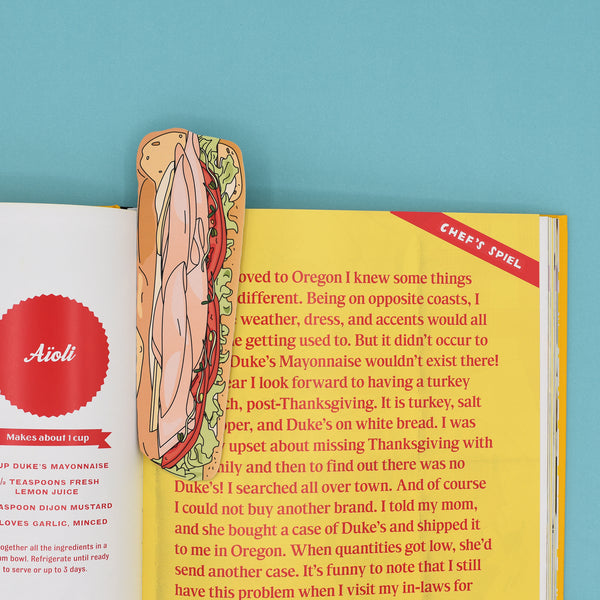 Aïoli
Makes about 1 cup
UP DUKE'S MAYONNAISE
TEASPOONS FRESH
LEMON JUICE
ASPOON DIJON MUSTARD
LOVES GARLIC, MINCED
ogether all the ingredients in a
m bowl. Refrigerate until ready
to serve or up to 3 days.
CHEF'S SPIEL
oved to Oregon I knew some things
different. Being on opposite coasts, I
weather, dress, and accents would all
e getting used to. But it didn't occur to
Duke's Mayonnaise wouldn't exist there!
ear I look forward to having a turkey
ch, post-Thanksgiving. It is turkey, salt
pper, and Duke's on white bread. I was
upset about missing Thanksgiving with
mily and then to find out there was no
Duke's! I searched all over town. And of course
I could not buy another brand. I told my mom,
and she bought a case of Duke's and shipped it
to me in Oregon. When quantities got low, she'd
send another case. It's funny to note that I still
have this problem when I visit my in-laws for